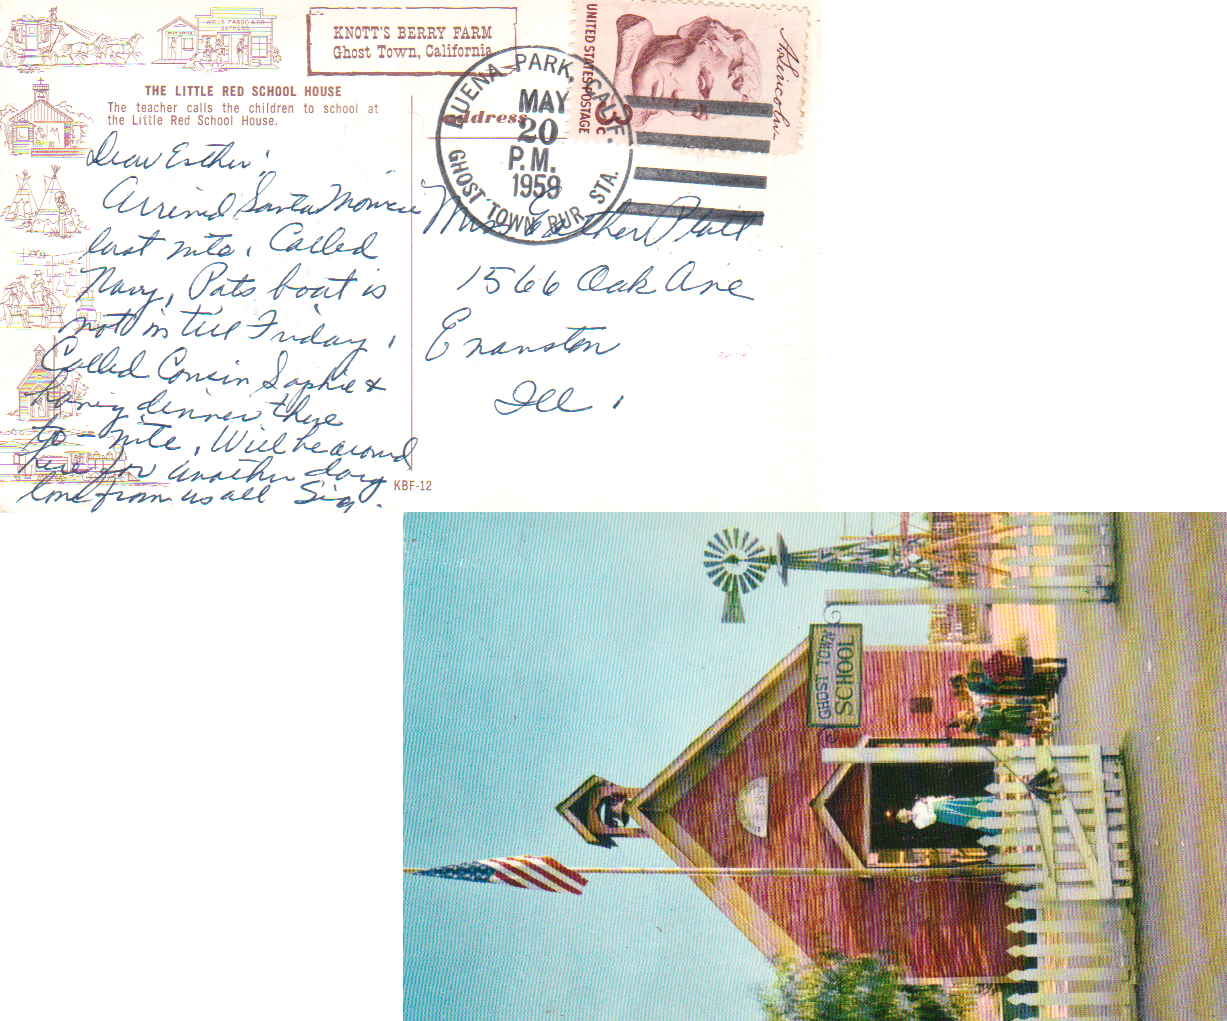 WELLS FARGO & CO
EXPRESS
KNOTT'S BERRY FARM
Ghost Town, California
THE LITTLE RED SCHOOL HOUSE
The teacher calls the children to school at
the Little Red School House.
address
UNITED STATES POSTAGE
3c
A. Lincoln
BUENA PARK, CALIF.
MAY
20
P.M.
1959
GHOST TOWN RUR. STA.
Dear Esther:
Arrived Santa Monica
last nite. Called
Navy, Pats boat is
not in till Friday.
Called Cousin Sophie &
having dinner there
to-nite. Will be around
here for another day
love from us all Sig.
Miss Esther Platt
1566 Oak Ave
Evanston
Ill.
KBF-12
GHOST TOWN
SCHOOL